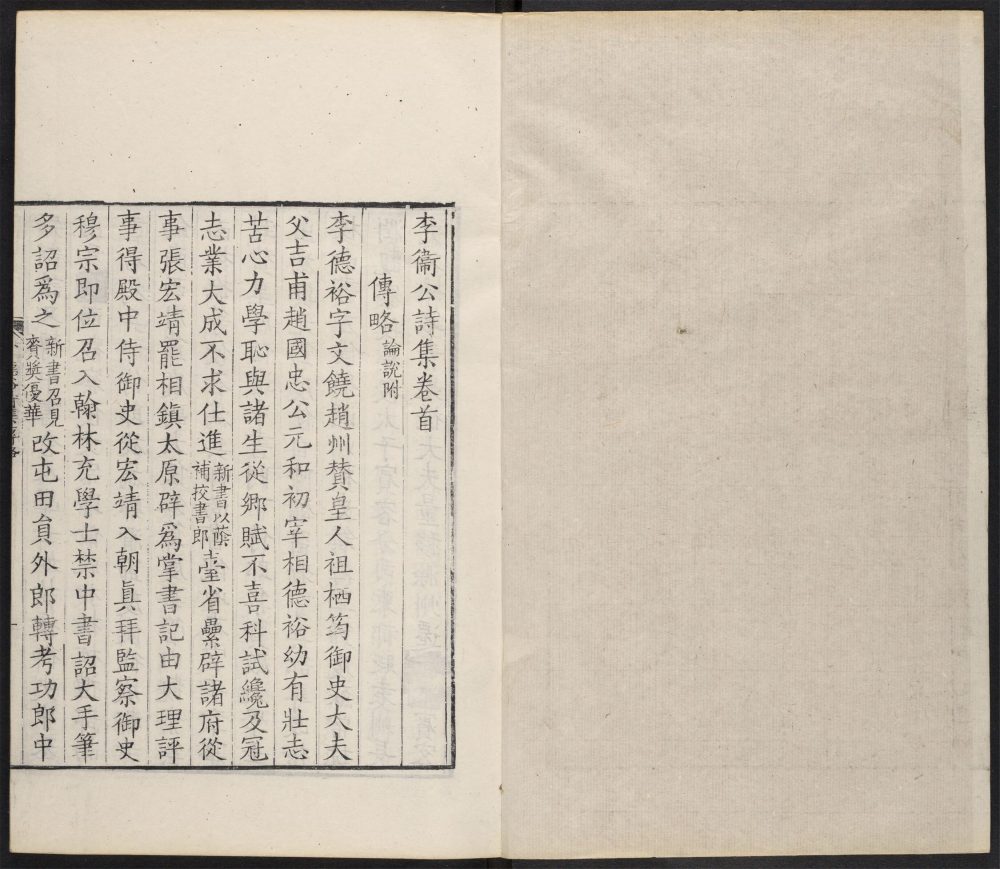 李衞公詩集卷首
傳略論說附
李德裕字文饒趙州賛皇人祖栖筠御史大夫
父吉甫趙國忠公元和初宰相德裕幼有壯志
苦心力學恥與諸生從鄉賦不喜科試纔及冠
志業大成不求仕進新書以蔭補挍書郎臺省纍辟諸府從
事張宏靖罷相鎮太原辟爲掌書記由大理評
事得殿中侍御史從宏靖入朝眞拜監察御史
穆宗即位召入翰林充學士禁中書詔大手筆
多詔爲之新書召見賚奬優華改屯田貟外郎轉考功郎中